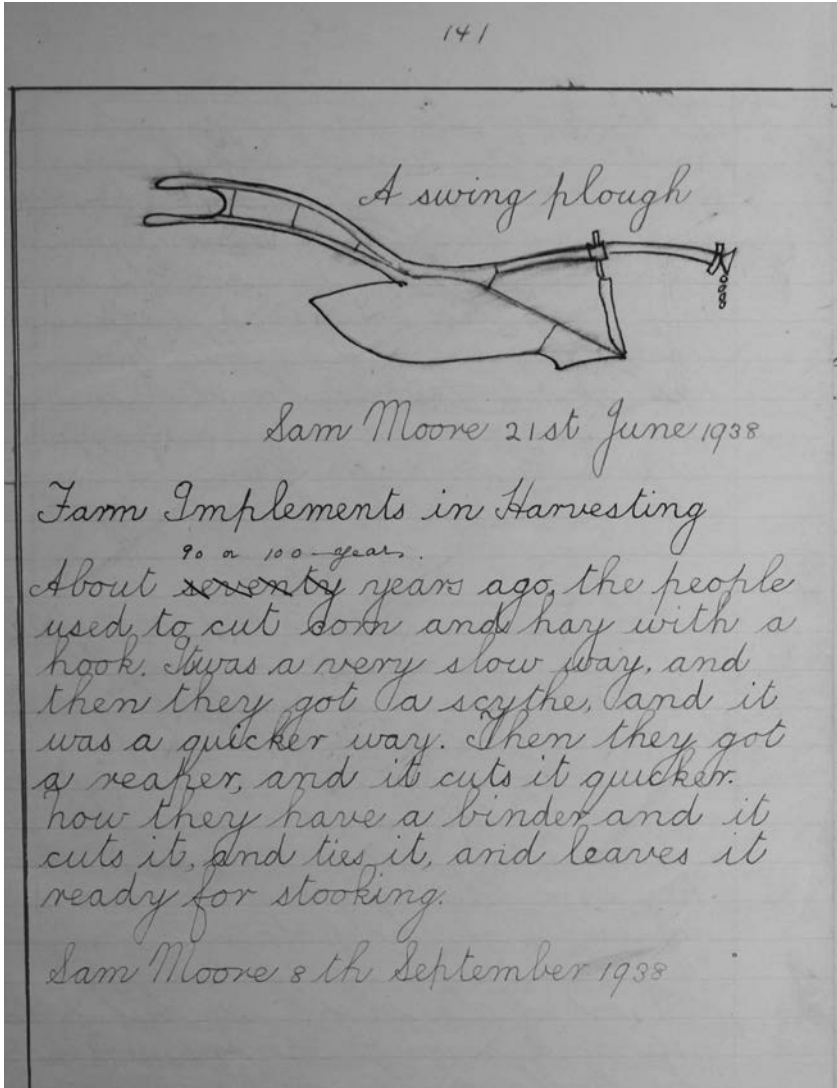 141
A swing plough
Sam Moore 21st June 1938
Farm Implements in Harvesting
90 or 100 years.
About seventy years ago, the people
used to cut corn and hay with a
hook. It was a very slow way, and
then they got a scythe, and it
was a quicker way. Then they got
a reaper, and it cuts it quicker.
now they have a binder and it
cuts it, and ties it, and leaves it
ready for stooking.
Sam Moore 8th September 1938